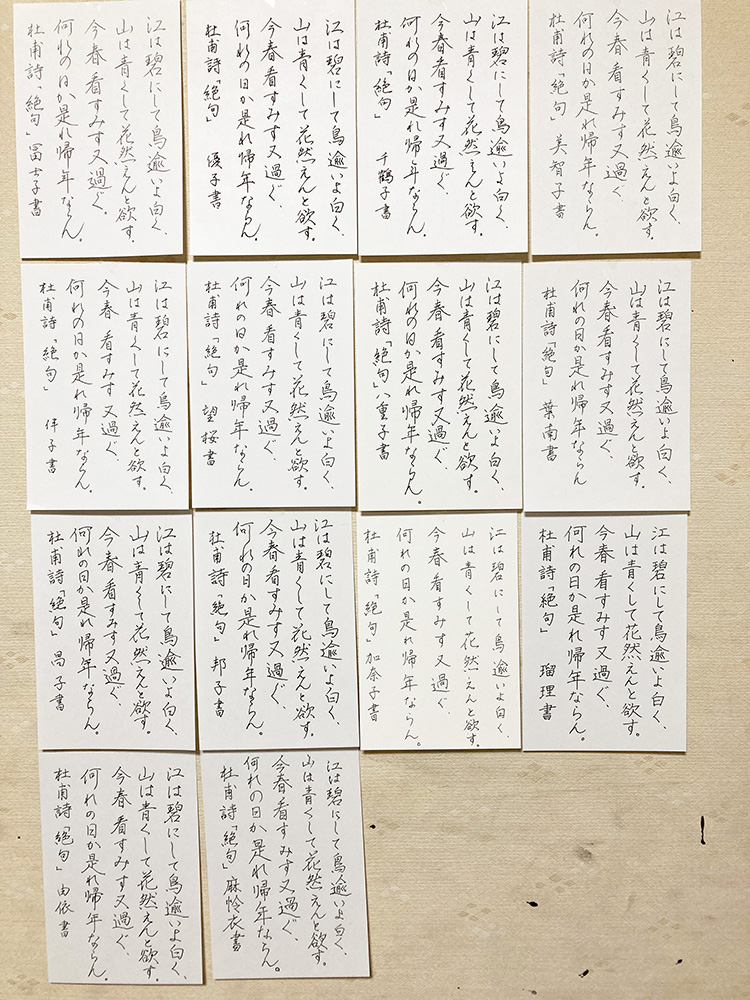 江は碧にして鳥逾いよ白く、
山は青くして花然えんと欲す。
今春看すみす又過ぐ、
何れの日か是れ帰年ならん。
杜甫詩「絶句」 美智子書
江は碧にして鳥逾いよ白く、
山は青くして花然えんと欲す。
今春看すみす又過ぐ、
何れの日か是れ帰年ならん。
杜甫詩「絶句」 千鶴子書
江は碧にして鳥逾いよ白く、
山は青くして花然えんと欲す。
今春看すみす又過ぐ、
何れの日か是れ帰年ならん。
杜甫詩「絶句」 優子書
江は碧にして鳥逾いよ白く、
山は青くして花然えんと欲す。
今春看すみす又過ぐ、
何れの日か是れ帰年ならん。
杜甫詩「絶句」冨士子書
江は碧にして鳥逾いよ白く、
山は青くして花然えんと欲す。
今春看すみす又過ぐ、
何れの日か是れ帰年ならん
杜甫詩「絶句」 葉南書
江は碧にして鳥逾いよ白く、
山は青くして花然えんと欲す。
今春看すみす又過ぐ、
何れの日か是れ帰年ならん。
杜甫詩「絶句」八重子書
江は碧にして鳥逾いよ白く、
山は青くして花然えんと欲す。
今春看すみす又過ぐ、
何れの日か是れ帰年ならん。
杜甫詩「絶句」 望桜書
江は碧にして鳥逾いよ白く、
山は青くして花然えんと欲す。
今春看すみす又過ぐ、
何れの日か是れ帰年ならん。
杜甫詩「絶句」 伴子書
江は碧にして鳥逾いよ白く、
山は青くして花然えんと欲す。
今春看すみす又過ぐ、
何れの日か是れ帰年ならん。
杜甫詩「絶句」 瑠理書
江は碧にして鳥逾いよ白く、
山は青くして花然えんと欲す。
今春看すみす又過ぐ、
何れの日か是れ帰年ならん。
杜甫詩「絶句」加奈子書
江は碧にして鳥逾いよ白く、
山は青くして花然えんと欲す。
今春看すみす又過ぐ、
何れの日か是れ帰年ならん。
杜甫詩「絶句」邦子書
江は碧にして鳥逾いよ白く、
山は青くして花然えんと欲す。
今春看すみす又過ぐ、
何れの日か是れ帰年ならん。
杜甫詩「絶句」昌子書
江は碧にして鳥逾いよ白く、
山は青くして花然えんと欲す。
今春看すみす又過ぐ、
何れの日か是れ帰年ならん。
杜甫詩「絶句」麻怜衣書
江は碧にして鳥逾いよ白く、
山は青くして花然えんと欲す。
今春看すみす又過ぐ、
何れの日か是れ帰年ならん。
杜甫詩「絶句」由依書